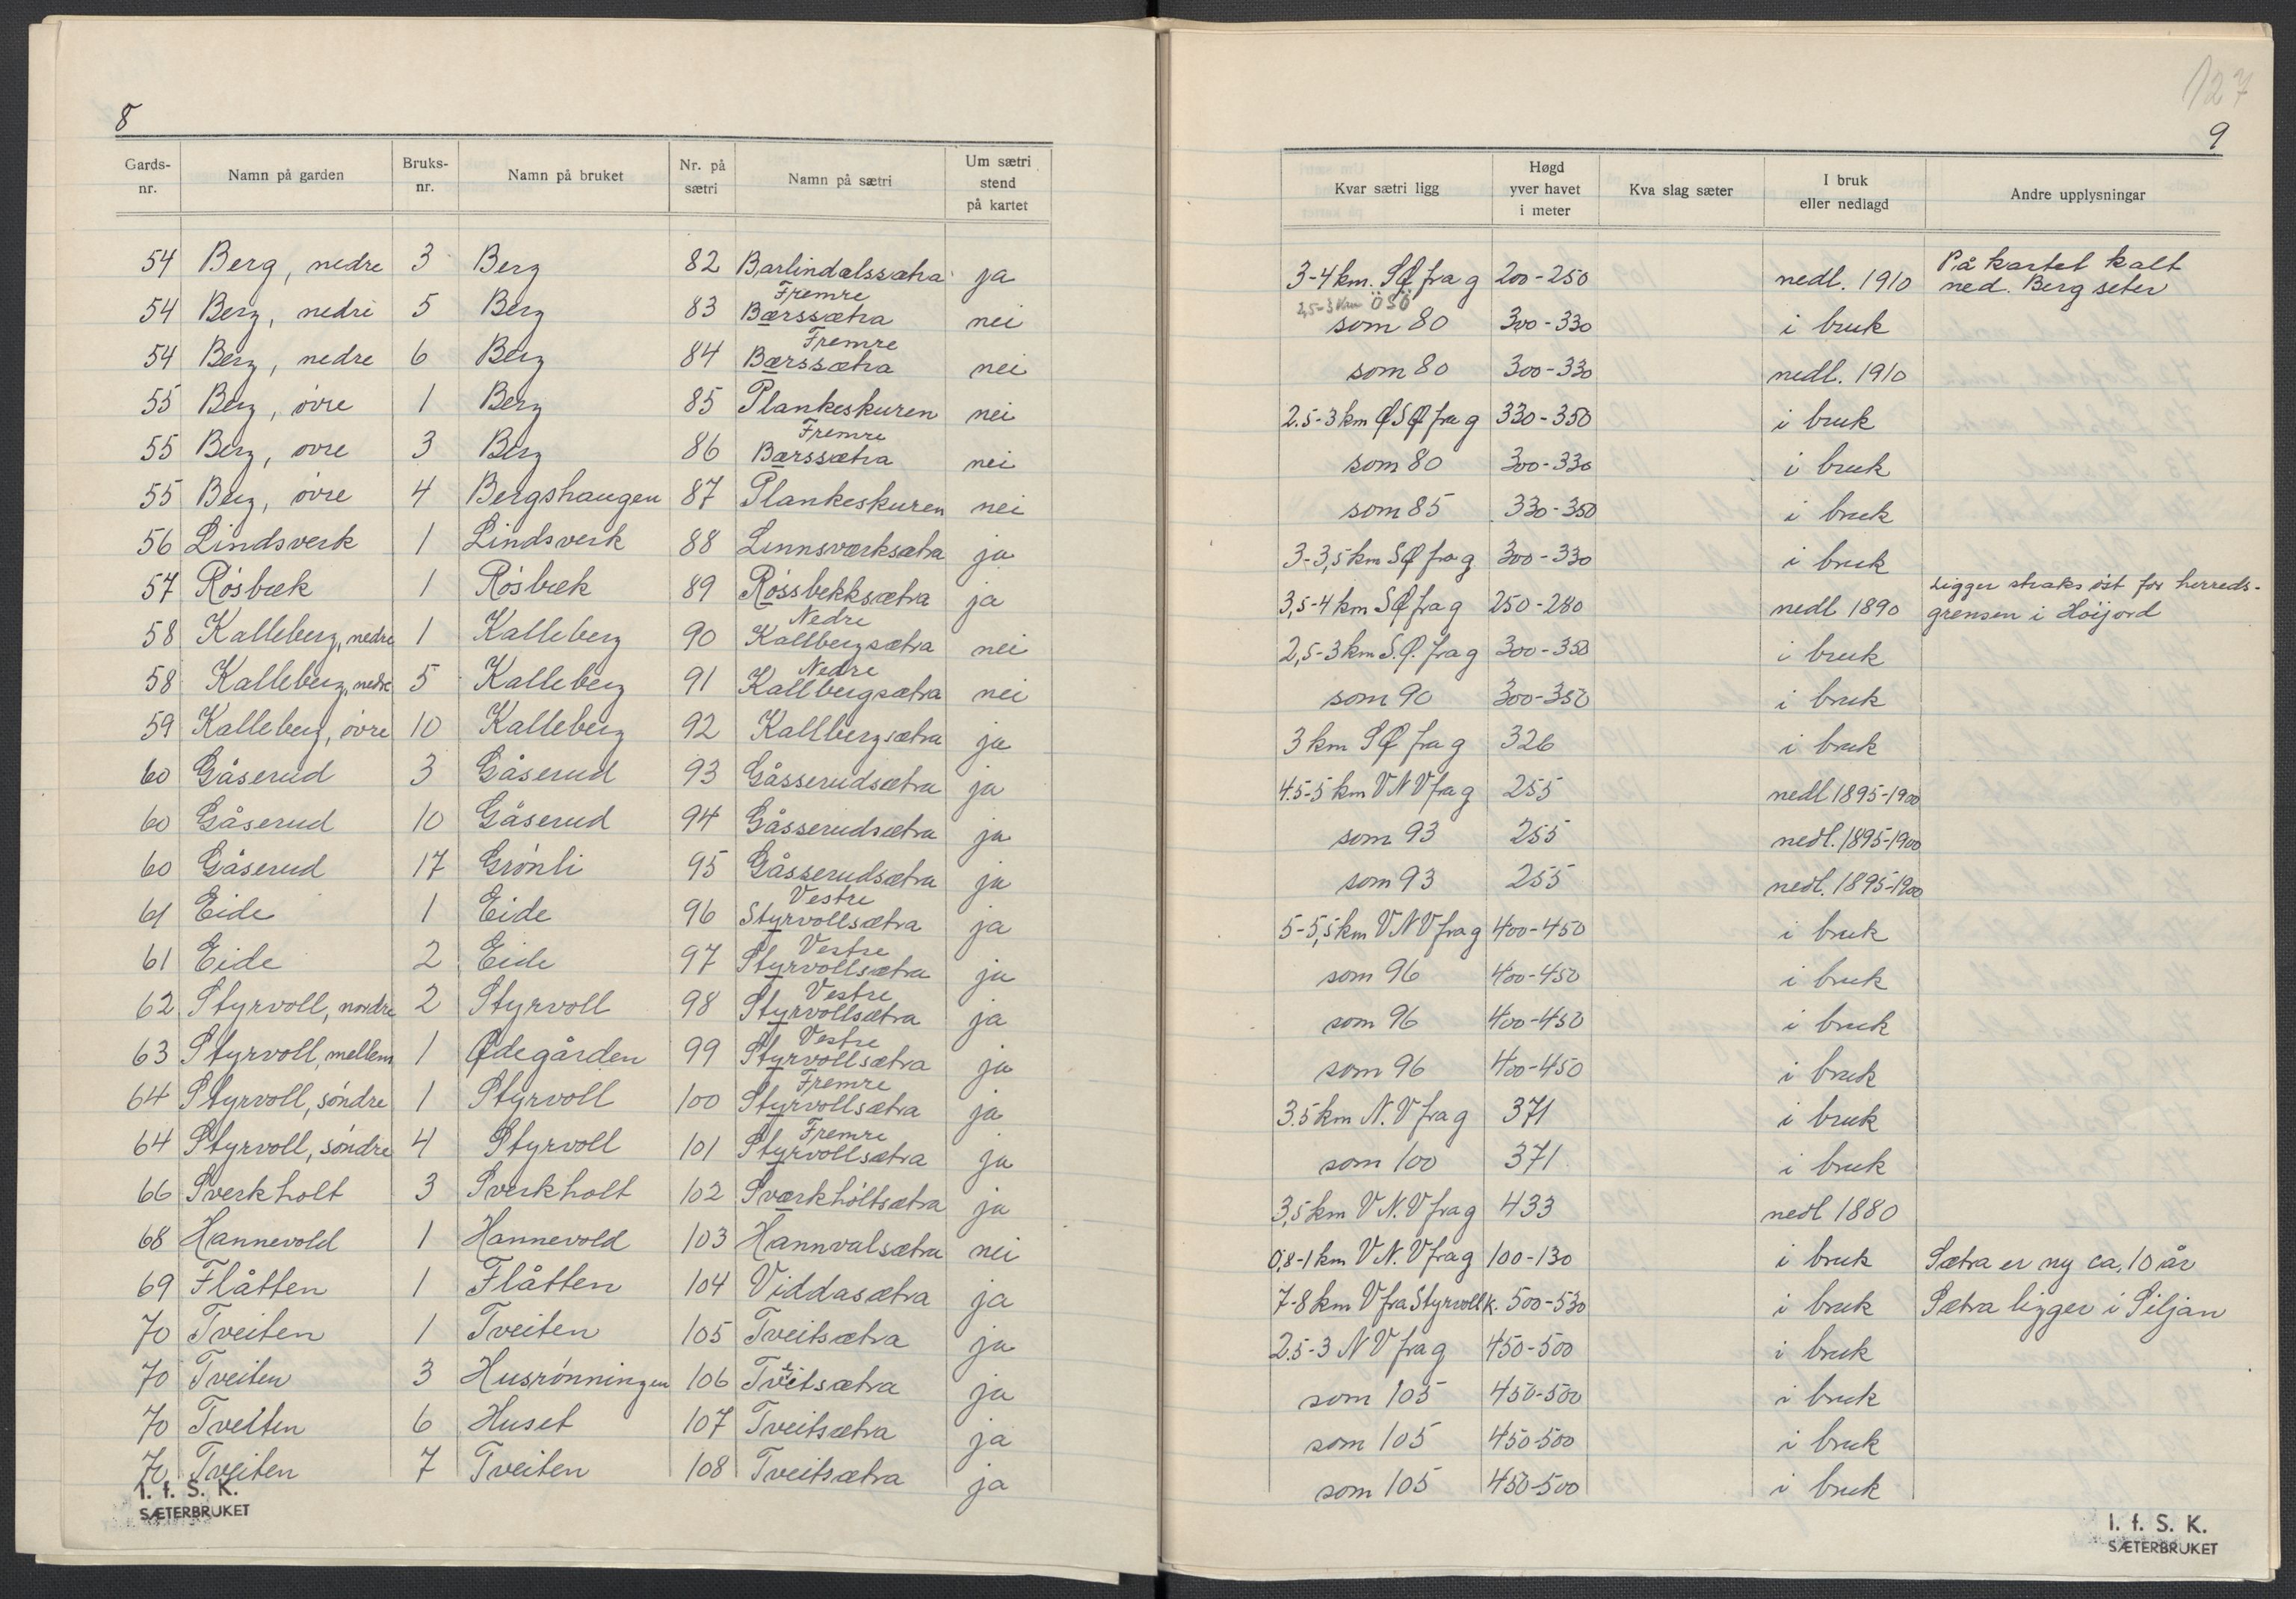 8
Gards-nr. Namn på garden Bruks-nr. Namn på bruket Nr. på sætri Namn på sætri Um sætri stend på kartet
54 Berg, nedre 3 Berg 82 Barlindalssætra ja
54 Berg, nedre 5 Berg 83 Fremre Bærssætra nei
54 Berg, nedre 6 Berg 84 Fremre Bærssætra nei
55 Berg, øvre 1 Berg 85 Plankeskuren nei
55 Berg, øvre 3 Berg 86 Fremre Bærssætra nei
55 Berg, øvre 4 Bergshaugen 87 Plankeskuren nei
56 Lindsverk 1 Lindsverk 88 Linnsværksætra ja
57 Røsbæk 1 Røsbæk 89 Røssbekksætra ja
58 Kalleberg, nedre 1 Kalleberg 90 Nedre Kallbergsætra nei
58 Kalleberg, nedre 5 Kalleberg 91 Nedre Kallbergsætra nei
59 Kalleberg, øvre 10 Kalleberg 92 Kallbergsætra ja
60 Gåserud 3 Gåserud 93 Gåsserudsætra ja
60 Gåserud 10 Gåserud 94 Gåsserudsætra ja
60 Gåserud 17 Grønli 95 Gåsserudsætra ja
61 Eide 1 Eide 96 Vestre Styrvollsætra ja
61 Eide 2 Eide 97 Vestre Styrvollsætra ja
62 Styrvoll, nordre 2 Styrvoll 98 Vestre Styrvollsætra ja
63 Styrvoll, mellem 1 Ødegården 99 Vestre Styrvollsætra ja
64 Styrvoll, søndre 1 Styrvoll 100 Fremre Styrvollsætra ja
64 Styrvoll, søndre 4 Styrvoll 101 Fremre Styrvollsætra ja
66 Sverkholt 3 Sverkholt 102 Sværkhöltsætra ja
68 Hannevold 1 Hannevold 103 Hannvalsætra nei
69 Flåtten 1 Flåtten 104 Viddasætra ja
70 Tveiten 1 Tveiten 105 Tveitsætra ja
70 Tveiten 3 Husrønningen 106 Tveitsætra ja
70 Tveiten 6 Huset 107 Tveitsætra ja
70 Tveiten 7 Tveiten 108 Tveitsætra ja
I. f. S. K.
SÆTERBRUKET
127
9
Kvar sætri ligg Høgd yver havet i meter Kva slag sæter I bruk eller nedlagd Andre upplysningar
3-4 km. SØ fra g 200-250 nedl. 1910 På kartet kalt ned. Berg seter
2,5-3 km ÖSÖ
som 80 300-330 i bruk
som 80 300-330 nedl. 1910
2.5-3 km ØSØ fra g 330-350 i bruk
som 80 300-330 i bruk
som 85 330-350 i bruk
3-3,5 km SØ fra g 300-330 i bruk
3,5-4 km SØ fra g 250-280 nedl 1890 Ligger straks øst for herreds-grensen i Høijord
2,5-3 km S.Ø. fra g 300-350 i bruk
som 90 300-350 i bruk
3 km SØ fra g 326 i bruk
4.5-5 km VNV fra g 255 nedl 1895-1900
som 93 255 nedl. 1895-1900
som 93 255 nedl. 1895-1900
5-5,5 km VNV fra g 400-450 i bruk
som 96 400-450 i bruk
som 96 400-450 i bruk
som 96 400-450 i bruk
3.5 km N.V fra g 371 i bruk
som 100 371 i bruk
3,5 km V.N.V fra g 433 nedl 1880
0,8-1 km V.N.V fra g 100-130 i bruk Sætra er ny ca. 10 år
7-8 km V fra Styrvoll k. 500-530 i bruk Sætra ligger i Siljan
2.5-3 NV fra g 450-500 i bruk
som 105 450-500 i bruk
som 105 450-500 i bruk
som 105 450-500 i bruk
I. f. S. K.
SÆTERBRUKET